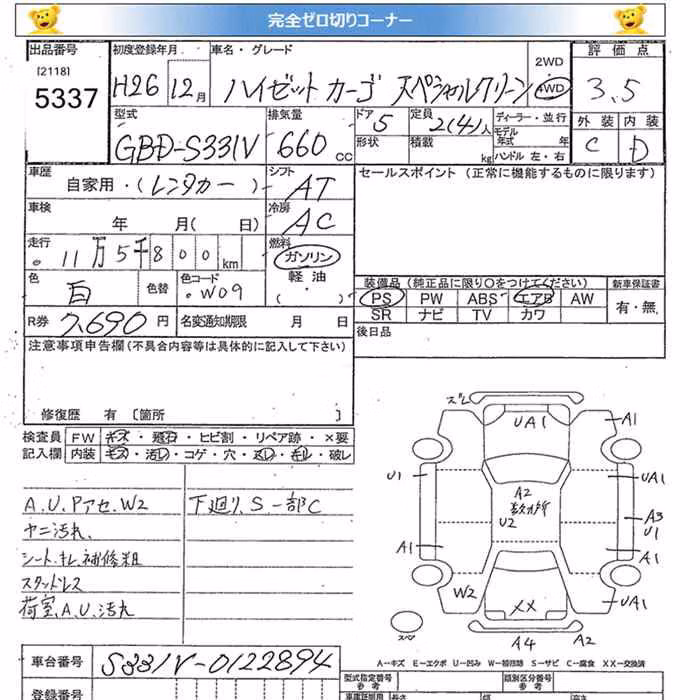 完全ゼロ切りコーナー
出品番号 初度登録年月 車名・グレード 評価点
[2118] 5337 H26 12月 ハイゼット カーゴ スペシャルクリーン 2WD 4WD 3.5
型式 排気量 ドア 定員 ディーラー・並行 外装 内装
GBD-S331V 660cc 5 2(4)人 モデル年式 年 C D
形状 積載 kg ハンドル 左・右
車歴 シフト セールスポイント (正常に機能するものに限ります)
自家用・(レンタカー) AT
車検 冷房
年 月(日) AC
走行 燃料
11万5千800km ガソリン
軽油
(・)
色 色替 色コード 装備品 (純正品に限り○をつけてください) 新車保証書
白 W09 PS PW ABS エアB AW 有・無
SR ナビ TV カワ
R券 7,690円 名変通知期限 月 日 後日品
注意事項申告欄(不具合内容等は具体的に記入して下さい)
修復歴 有 [箇所 ]
検査員 FW キズ・飛石・ヒビ割・リペア跡・×要
記入欄 内装 キズ・汚レ・コゲ・穴・スレ・キレ・破レ
A.U.Pアセ.W2 下廻り.S.一部C
ヤニ汚れ.
シート.キレ.補修粗
スタッドレス
荷室.A.U.汚れ
スレ
UA1 A1
U1 UA1
A2
数カ所
U2 A3
U1
A1 A1
W2 XX UA1
スペア A4 A2
A-キズ E-エクボ U-凹み W-補修跡 S-サビ C-腐食 XX-交換済
車台番号 S331V-0122894
型式指定番号 参考 類別区分番号 参考
登録番号